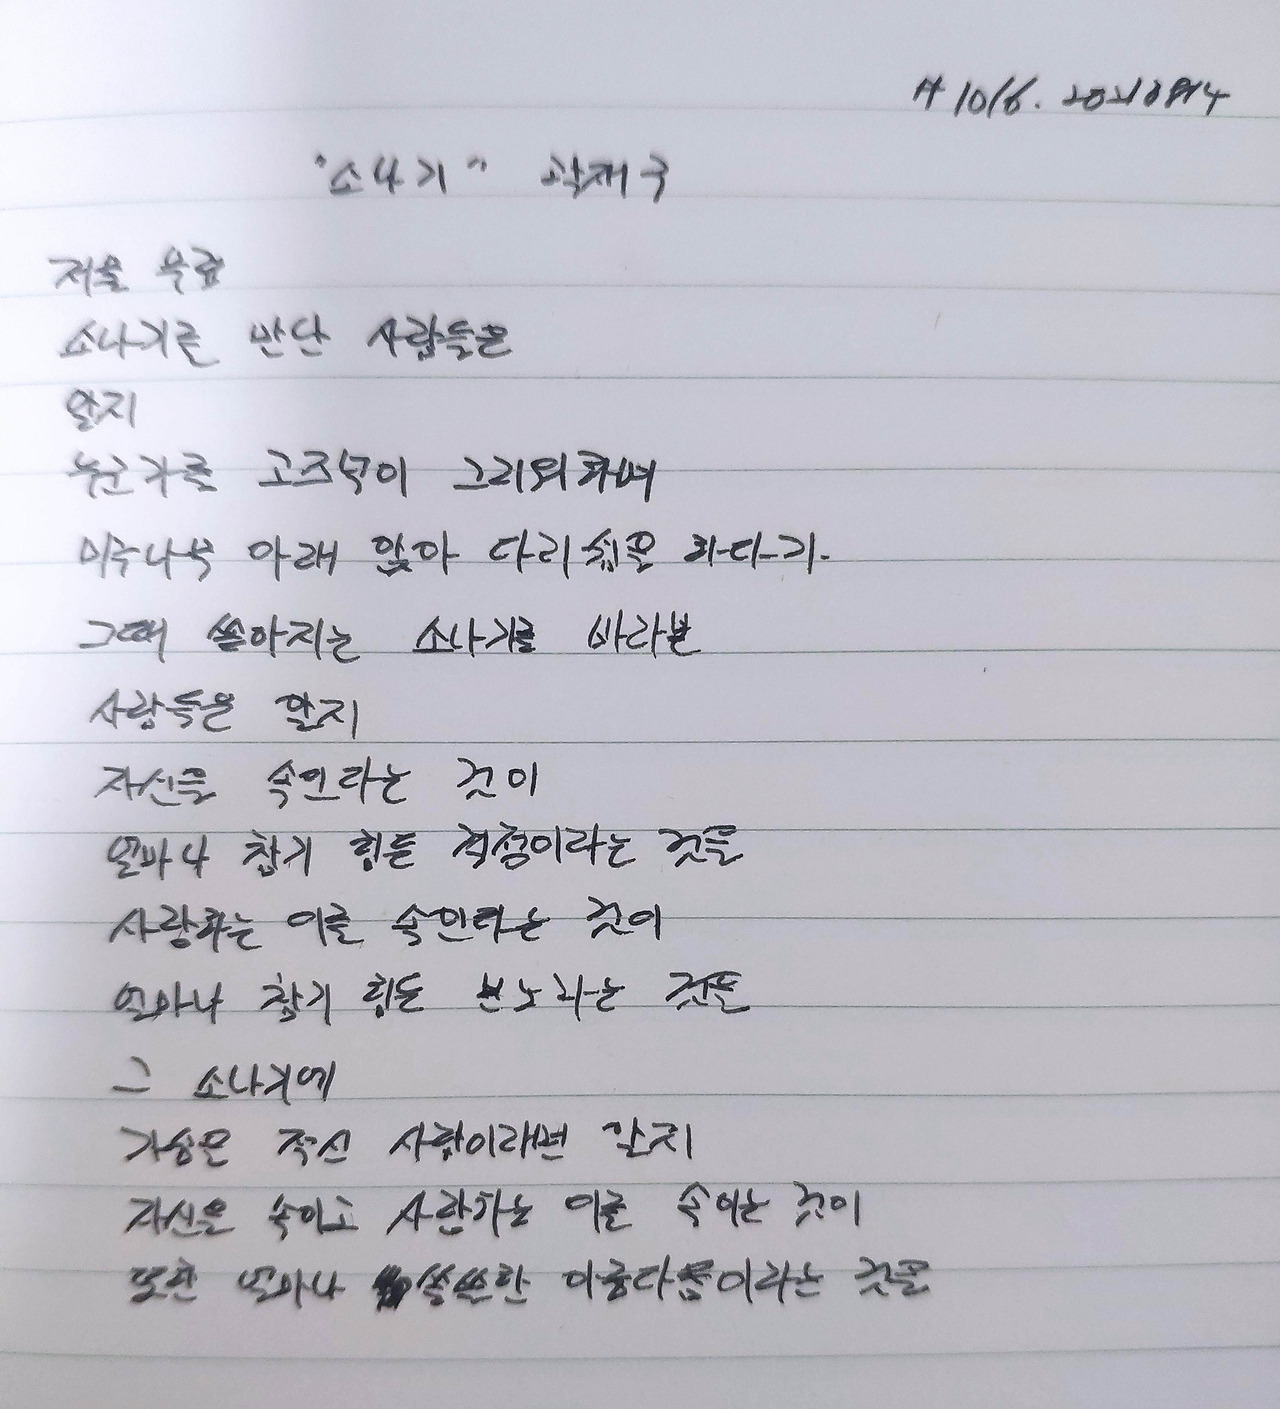 # 1016. 20210814
"소나기" 곽재구
저물 무렵
소나기를 만난 사람들은
알지
누군가를 고즈넉이 그리워하며
미루나무 아래 앉아 다리쉼을 하다가
그때 쏟아지는 소나기를 바라본
사람들은 알지
자신을 속인다는 것이
얼마나 참기 힘든 걱정이라는 것을
사랑하는 이를 속인다는 것이
얼마나 참기 힘든 분노라는 것을
그 소나기에
가슴을 적신 사람이라면 알지
자신을 속이고 사랑하는 이를 속이는 것이
또한 얼마나 쓸쓸한 아름다움이라는 것을